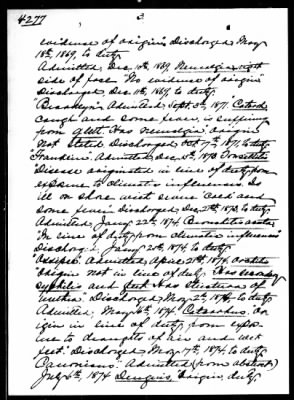 4277
evidence of origin". Discharged May
18th, 1869, to duty.
Admitted, Dec. 10th, 1869, Neuralgia right
side of face "No evidence of origin"
Discharged, Dec. 11th, 1869, to duty.
"Brooklyn", Admitted Sept. 3d, 1871, Catarrh
cough and some fever, is suffering
from gleet. Has neuralgia origin
not stated. Discharged Oct. 7th, 1871, to duty.
"Franklin". Admitted, Dec. 15th, 1873 Bronchitis
Disease originated in line of duty from
exposure to climatic influences. Is
ill on shore with severe cold and
some fever. Discharged, Dec. 1873, to duty.
Admitted, Jan'y 22d, 1874, Bronchitis acute
"In line of duty from climatic influences"
Discharged, Jan'y 1874 to duty.
"Ossipee". Admitted, April 21st, 1874,
"Origin not in line of duty. Has secondary
syphilis and gleet. Has stricture of
urethra." Discharged, May 2d, 1874, to duty.
Admitted, May 6th, 1874, Catarrhus. Or-
igin in line of duty from expo-
sure to draughts of air and wet
feet." Discharged May 17th, 1874, to duty
"Canonicus". Admitted (from abstract)
July 6th, 1874 Origin, duty